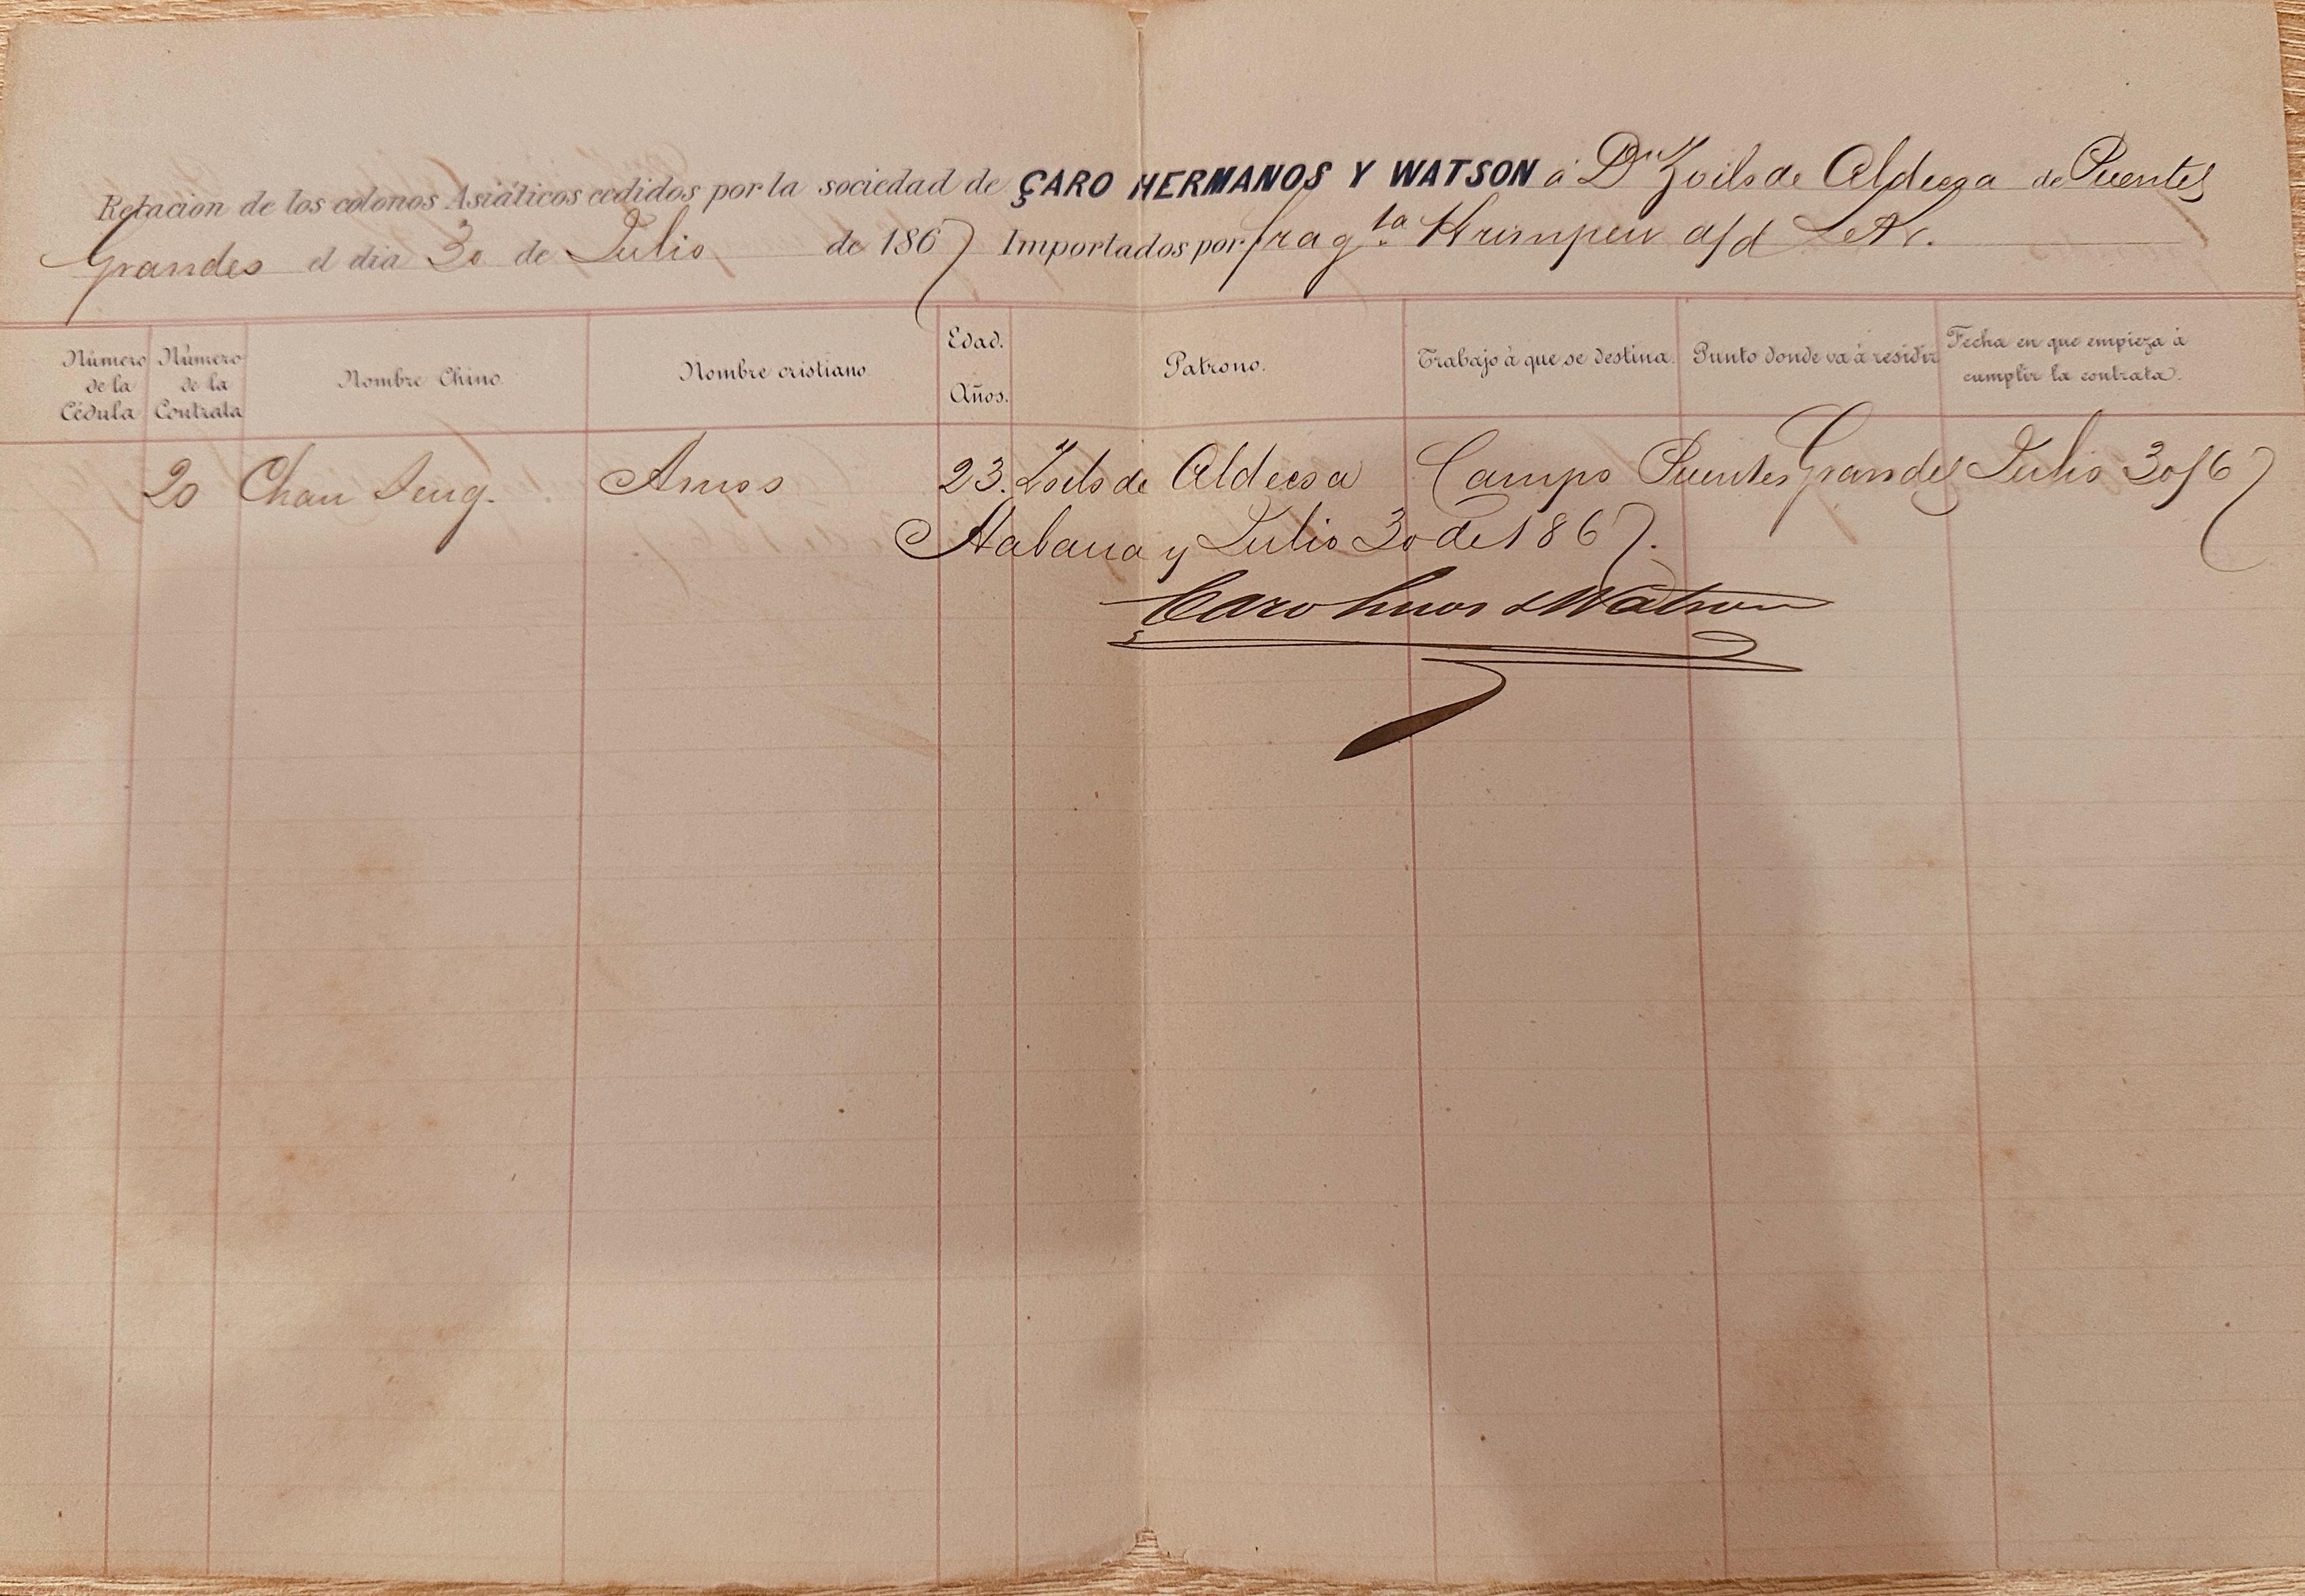 Relacion de los colonos Asiáticos cedidos por la sociedad de CARO HERMANOS Y WATSON á Dn Zoilo de Aldecoa de Puentes
Grandes el dia 30 de Julio de 1867 Importados por frag.ta a/d
Número de la Cédula
Número de la Contrata
Nombre Chino.
Nombre cristiano.
Edad. Años.
Patrono.
Trabajo à que se destina.
Punto donde va à residir
Fecha en que empieza à cumplir la contrata.
20 Chan Seng. Amos 23. Zoilo de Aldecoa Campo Puentes Grandes Julio 30/67
Habana y Julio 30 de 1867.
Caro hnos & Watson